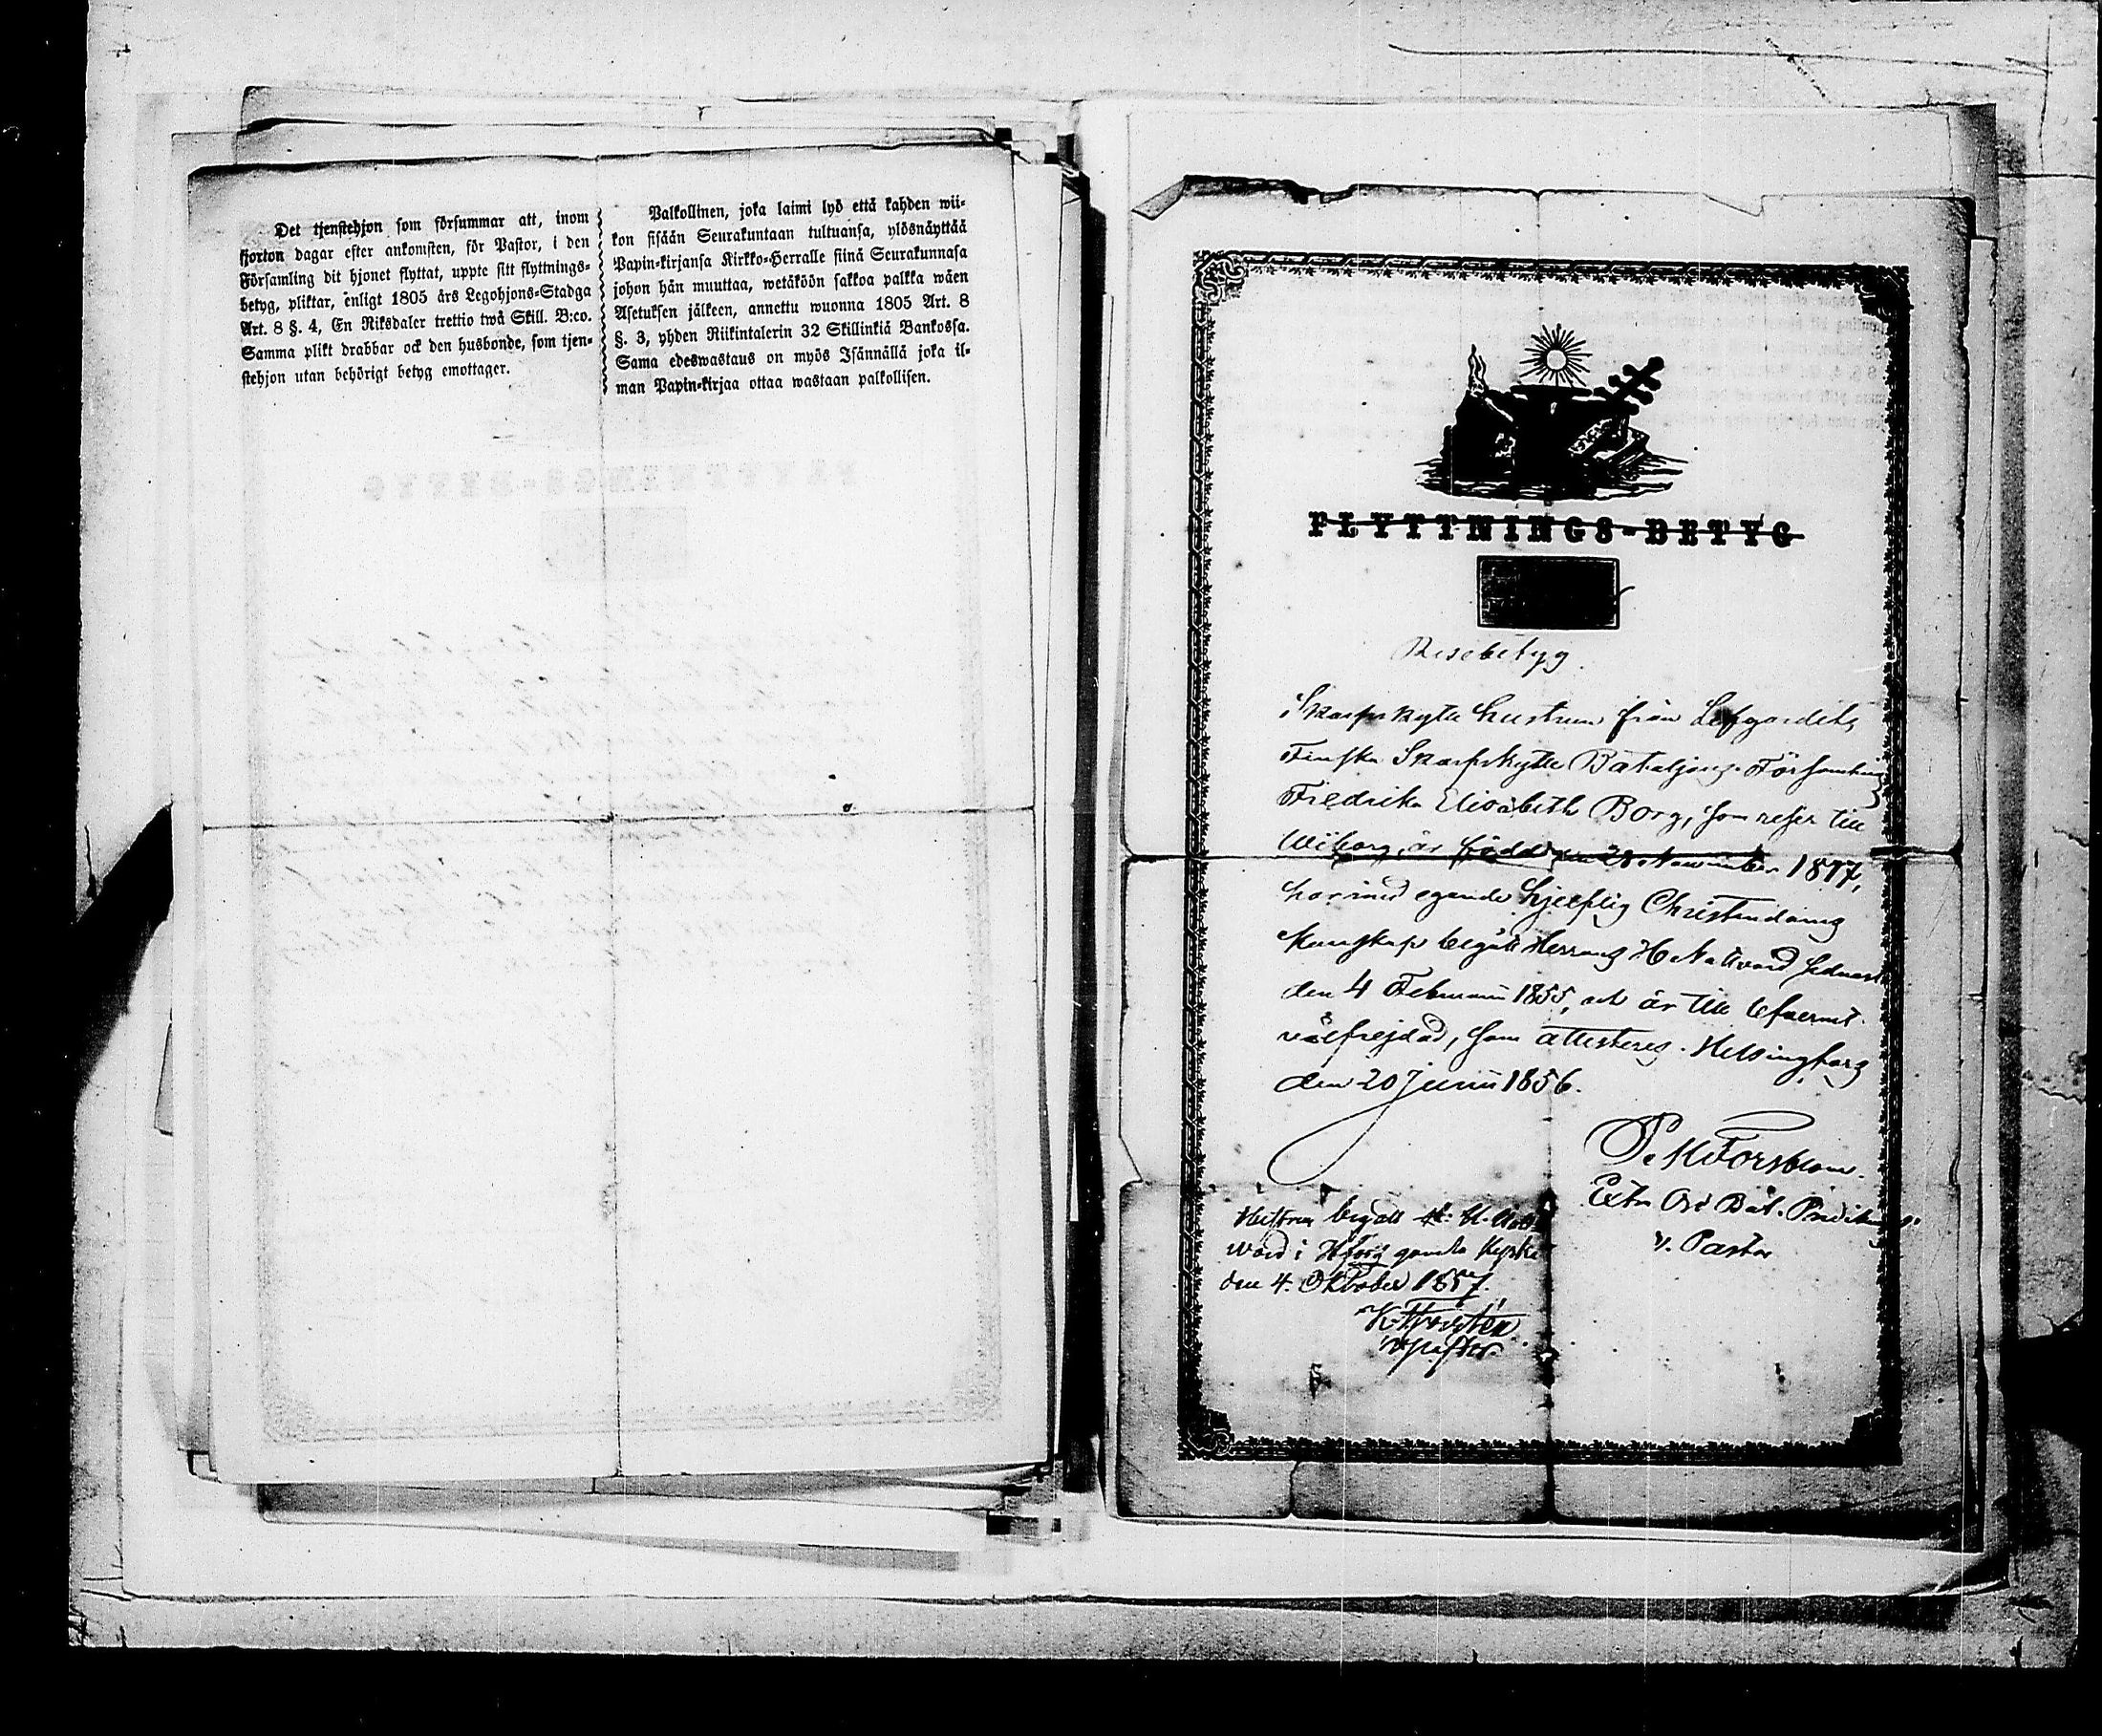 Det tjenstehjon som försummar att, inom
fjorton dagar efter ankomsten, för Pastor, i den
Församling dit hjonet flyttat, uppte sitt flyttnings-
betyg, pliktar, enligt 1805 års Legohjons-Stadga
Art. 8 §. 4, En Riksdaler trettio twå Skill. B:co.
Samma plikt drabbar ock den husbonde, som tjen-
stehjon utan behörigt betyg emottager.
Palkollinen, joka laimi lyö että kahden wii-
kon sisään Seurakuntaan tultuansa, ylösnäyttää
Papin-kirjansa Kirkko-Herralle siinä Seurakunnasa
johon hän muuttaa, wetäköön sakkoa palkka wäen
Asetuksen jälkeen, annettu wuonna 1805 Art. 8
§. 3, yhden Riikintalerin 32 Skillinkiä Bankossa.
Sama edeswastaus on myös Isännällä joka il-
man Papin-kirjaa ottaa wastaan palkollisen.
FLYTTNINGS-BETYG
Resebetyg.
Skarpskytte hustrun från Lifgardets
Finska Skarpskytte Bataljons Församling
Fredrika Elisabeth Borg, som reser till
Wiborg, är född den 28 November 1817,
har med egande hjelplig Christendoms
kunskap begått Herrans H. Nattvard sednast
den 4 Februarii 1855, och är till lefvernet
välfrejdad, som attesteras. Helsingfors
den 20 Junii 1856.
Forsblom.
Extra Ord Bat. Predikant
v. Pastor
Hustrun begått H. Natt
ward i Hfors gamla kyrka
den 4. Oktober 1857.
v. pastor.